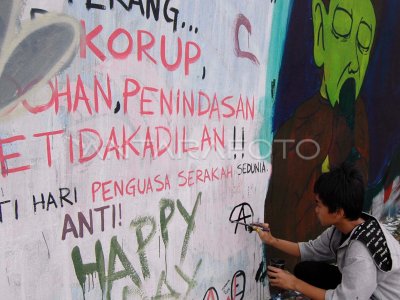 TERANG...
KORUP,
PENINDASAN
ETIDAKADILAN!!
TI HARI PENGUASA SERAKAH SEDUNIA.
ANTI!
HAPPY
ANTARAFOTO